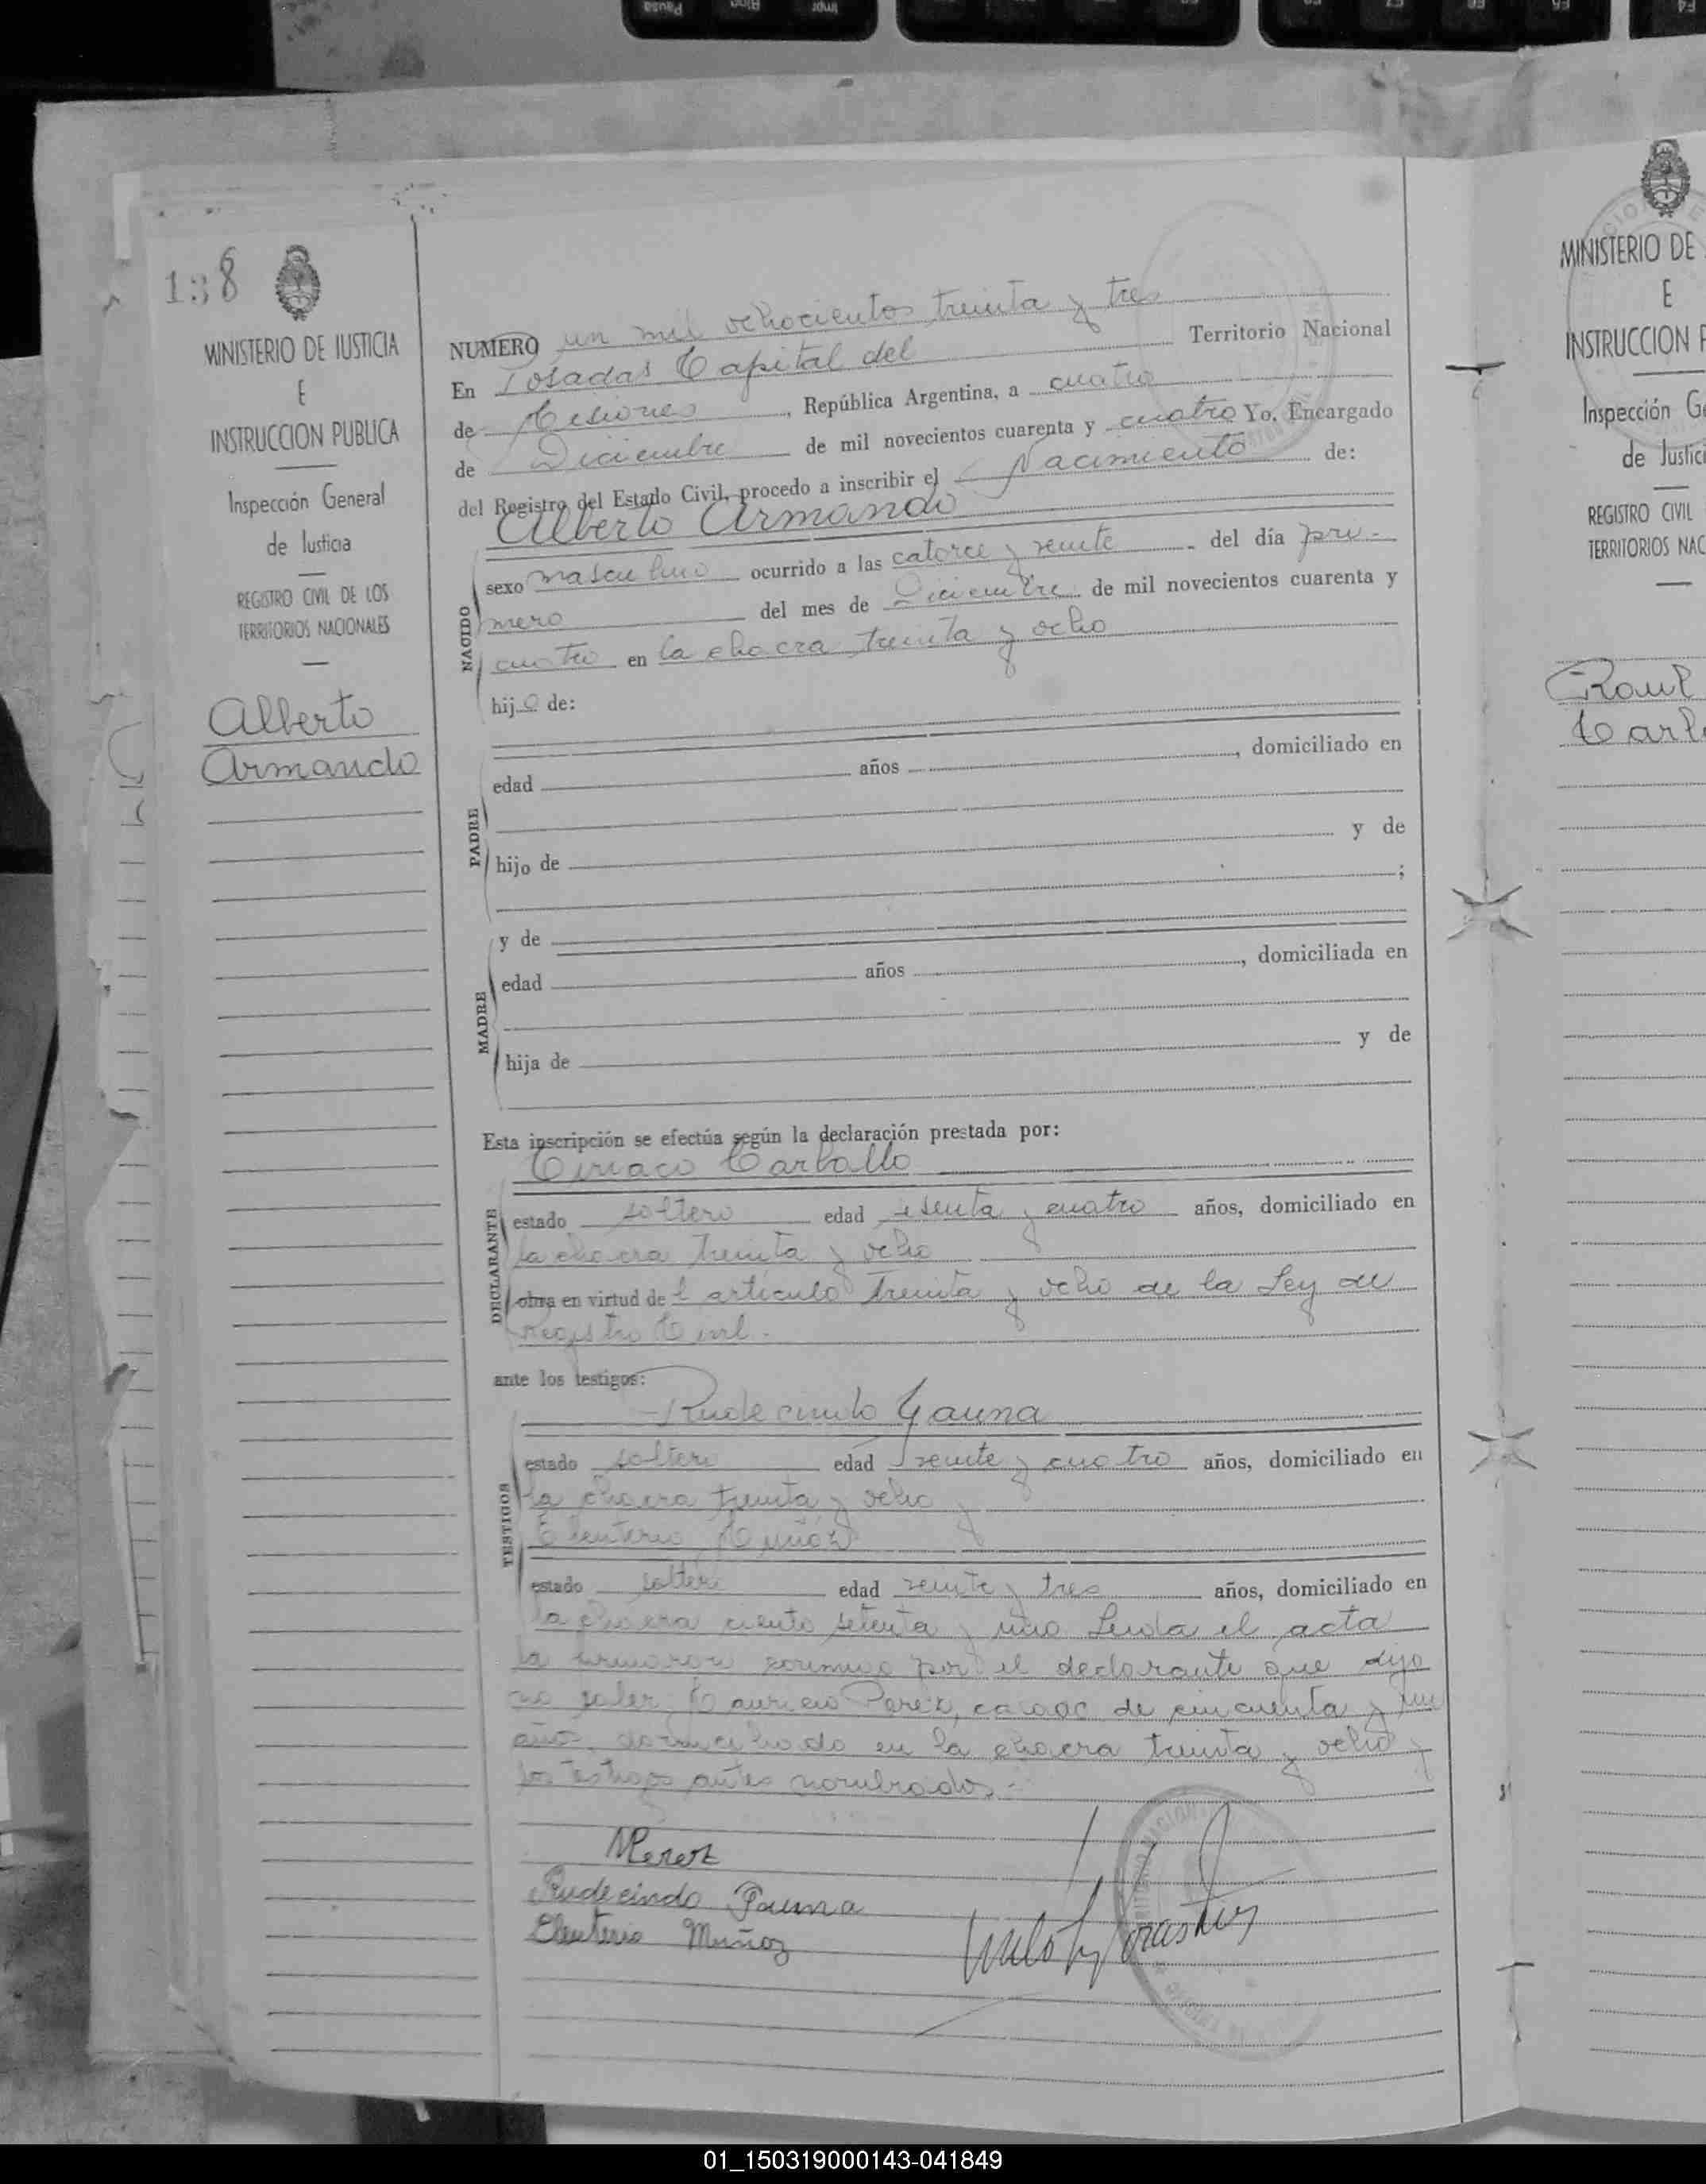 138
MINISTERIO DE JUSTICIA
E
INSTRUCCION PUBLICA
Inspección General
de Justicia
REGISTRO CIVIL DE LOS
TERRITORIOS NACIONALES
Alberto
Armando
NUMERO un mil ochocientos treinta y tres
En Posadas Capital del Territorio Nacional
de Misiones, República Argentina, a cuatro
de Diciembre de mil novecientos cuarenta y cuatro Yo, Encargado
del Registro del Estado Civil, procedo a inscribir el Nacimiento de:
Alberto Armando
NACIDO
sexo masculino ocurrido a las catorce y veinte del día pri-
mero del mes de Diciembre de mil novecientos cuarenta y
cuatro en la chacra treinta y ocho
hijo de:
PADRE
edad años, domiciliado en
hijo de y de
;
MADRE
y de
edad años, domiciliada en
hija de y de
Esta inscripción se efectúa según la declaración prestada por:
Ciriaco Carballo
DECLARANTE
estado soltero edad y cuatro años, domiciliado en
la chacra treinta y ocho
obra en virtud del artículo treinta y ocho de la Ley de
Registro Civil.
ante los testigos:
Rudecindo Gauna
TESTIGOS
estado soltero edad veinte y cuatro años, domiciliado en
la chacra treinta y ocho y
Eleuterio Muñoz
estado soltero edad veinte y tres años, domiciliado en
la chacra ciento setenta y uno Leida el acta
la firmaron por el declarante que dijo
no saber, Mauricio Perez, de cincuenta y un
años, domiciliado en la chacra treinta y ocho y
los testigos antes nombrados.-
MPerez
Rudecindo Gauna
Eleuterio Muñoz
MINISTERIO DE
E
INSTRUCCION P
Inspección Ge
de Justici
REGISTRO CIVIL
TERRITORIOS NAC
Raul
Carl
01_150319000143-041849